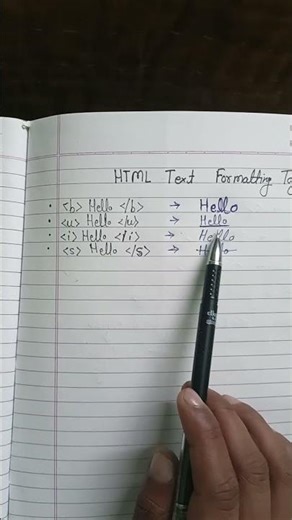 HTML Text Formatting Ta
• <b> Hello </b> → Hello
• <u> Hello </u> → Hello
• <i> Hello </i> → Hello
• <s> Hello </s> → Hello